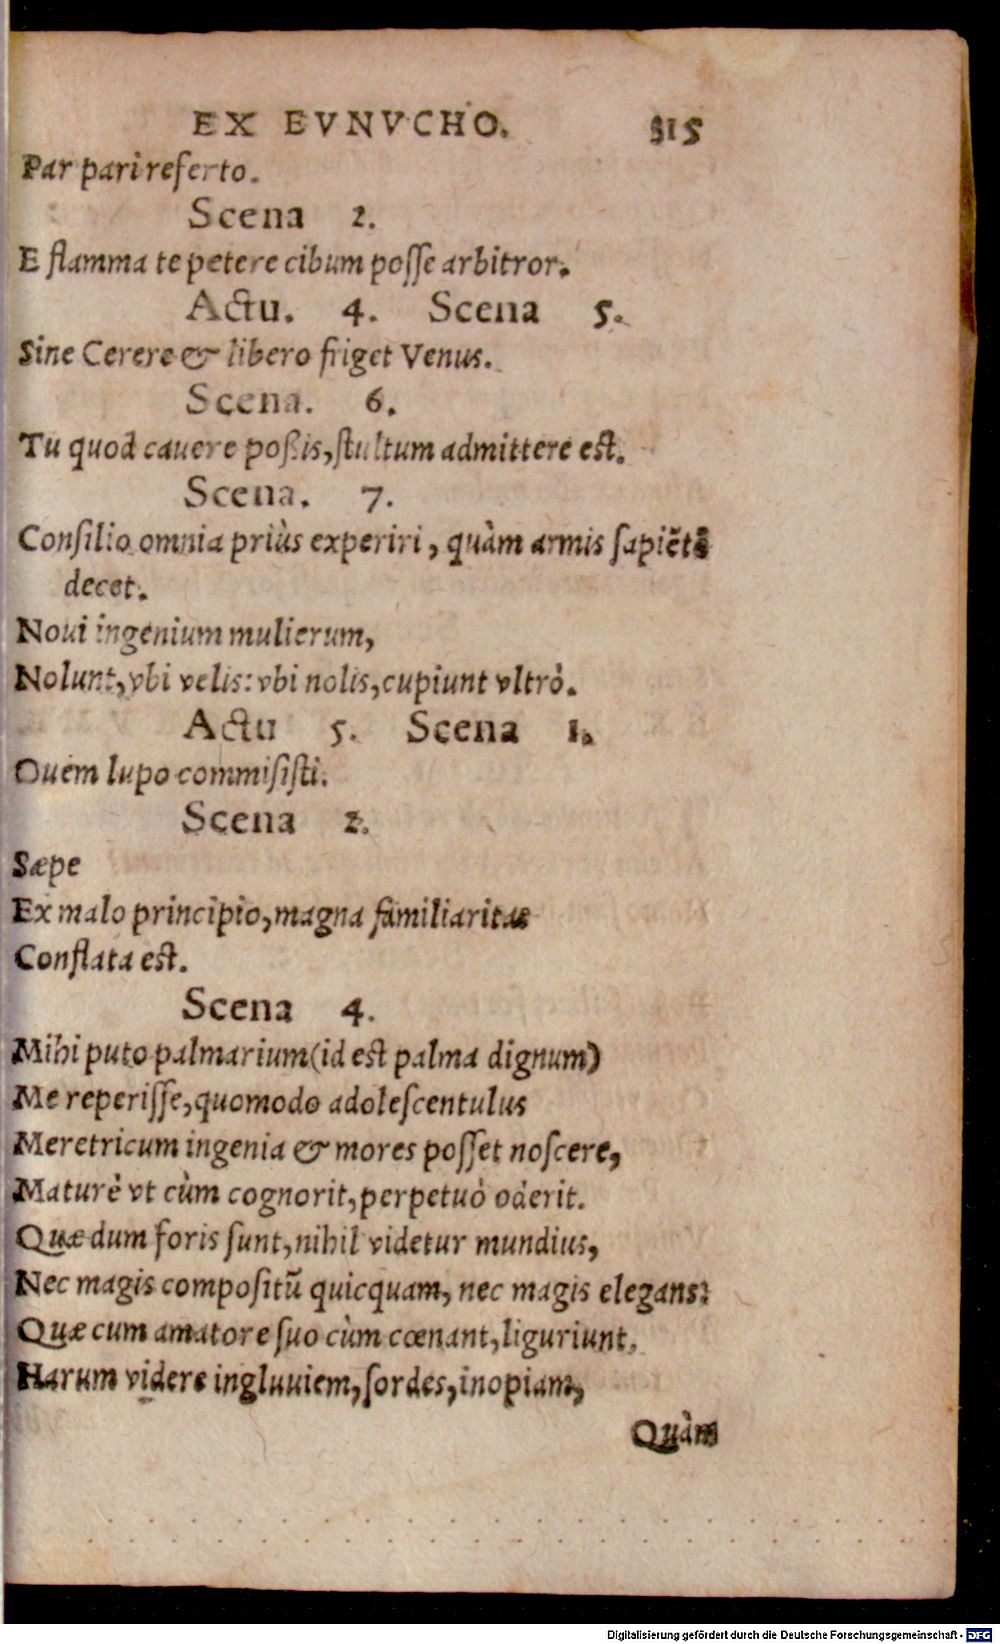 EX EVNVCHO. 315
Par pari referto.
Scena 2.
E flamma te petere cibum posse arbitror.
Actu. 4. Scena 5.
Sine Cerere & libero friget Venus.
Scena. 6.
Tu quod cauere poßis, stultum admittere est.
Scena. 7.
Consilio omnia priùs experiri, quàm armis sapiẽtẽ
decet.
Noui ingenium mulierum,
Nolunt, vbi velis: vbi nolis, cupiunt vltrò.
Actu 5. Scena 1.
Ouem lupo commisisti.
Scena 2.
Sæpe
Ex malo principio, magna familiaritas
Conflata est.
Scena 4.
Mihi puto palmarium (id est palma dignum)
Me reperisse, quomodo adolescentulus
Meretricum ingenia & mores posset noscere,
Maturè vt cùm cognorit, perpetuò oderit.
Quæ dum foris sunt, nihil videtur mundius,
Nec magis compositũ quicquam, nec magis elegans:
Quæ cum amatore suo cùm cœnant, liguriunt.
Harum videre ingluuiem, sordes, inopiam,
Quàm
Digitalisierung gefördert durch die Deutsche Forschungsgemeinschaft - DFG